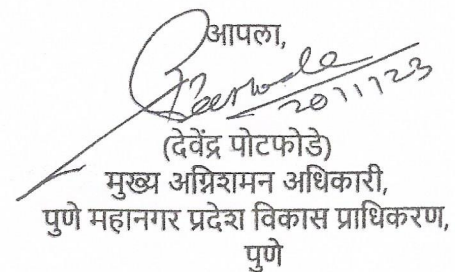 आपला,
20/11/23
(देवेंद्र पोटफोडे)
मुख्य अग्निशमन अधिकारी,
पुणे महानगर प्रदेश विकास प्राधिकरण,
पुणे